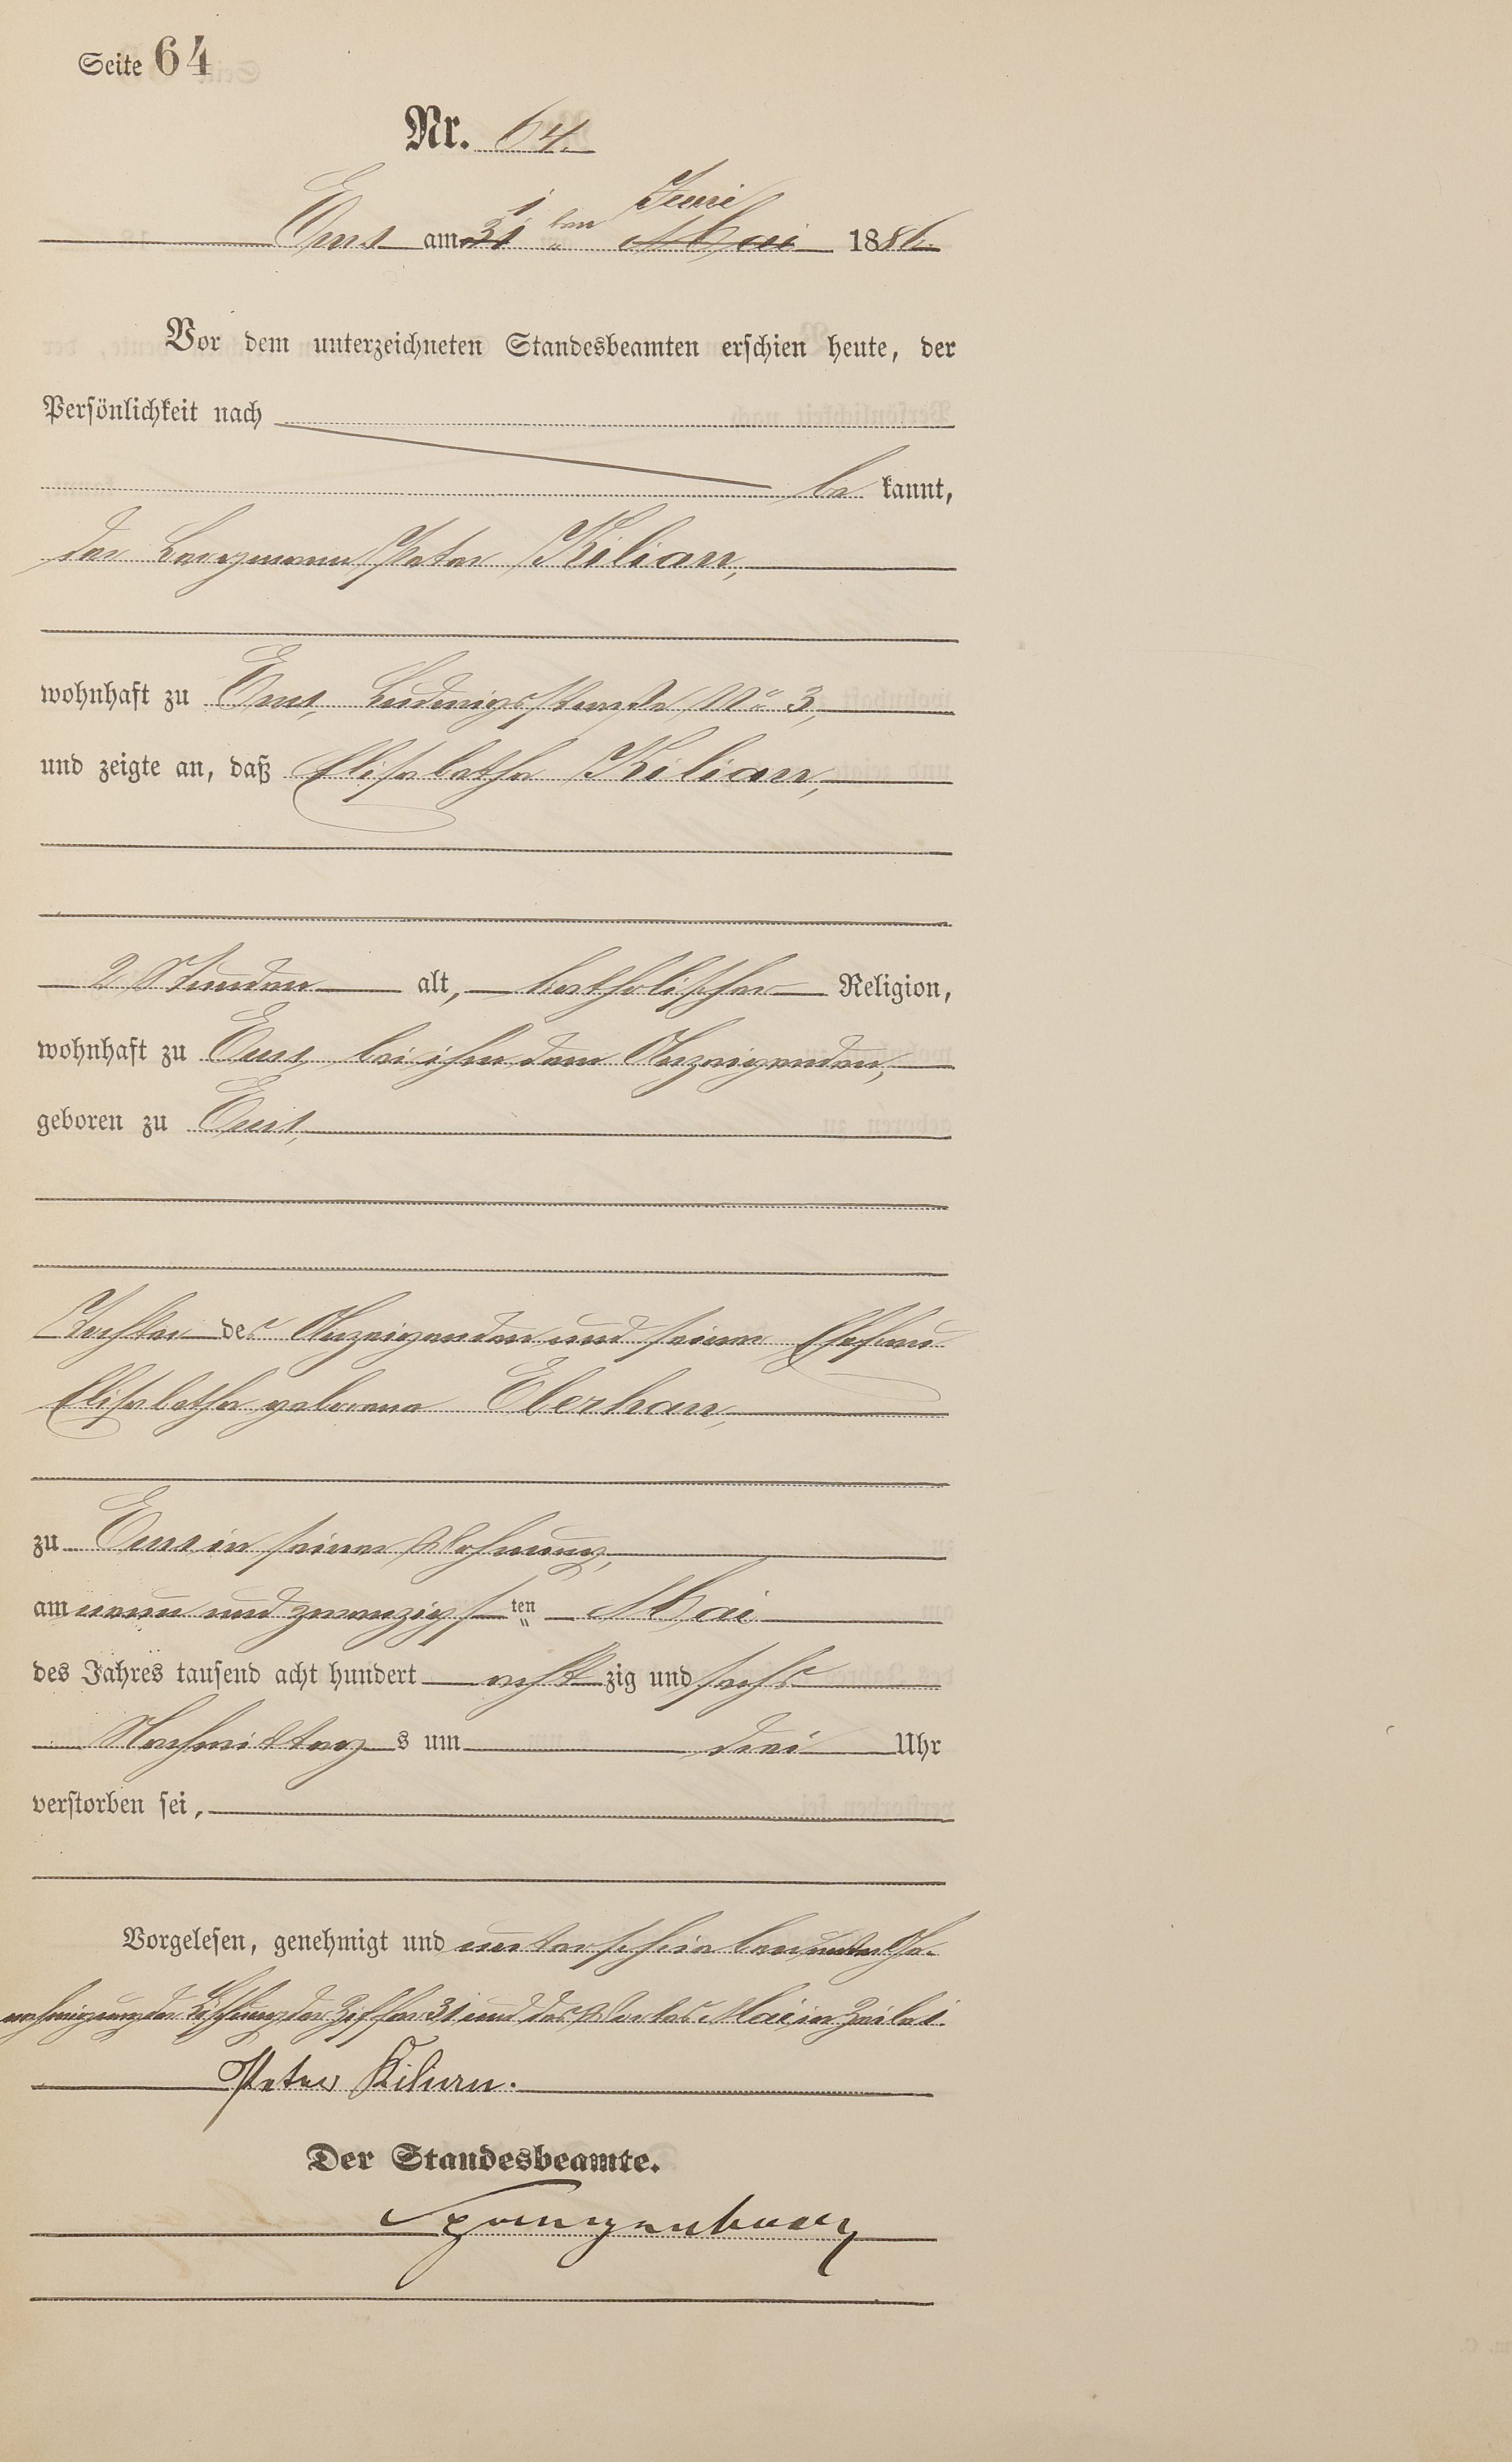 Seite 64
Nr. 64.
1 Juni
Ems am 31ten Mai 1886.
Vor dem unterzeichneten Standesbeamten erschien heute, der
Persönlichkeit nach
be kannt,
der Bergmann Peter Kilian,
wohnhaft zu Ems, Ludwigsstraße No 3,
und zeigte an, daß Elisabetha Kilian,
2 Stunden alt, katholischer Religion,
wohnhaft zu Ems bei ihm dem Anzeigenden,
geboren zu Ems,
Tochter des Anzeigenden und seiner Ehefrau
Elisabetha geborene Eberhan,
zu Ems in seiner Wohnung,
am neun und zwanzigsten Mai
des Jahres tausend acht hundert acht zig und sechs
Nachmittag s um drei Uhr
verstorben sei,
Vorgelesen, genehmigt und unterschrieben unter Ge-
nehmigung der Löschung der Ziffer 31 und des Wortes Mai in Zeile 1.
Peter Kilian.
Der Standesbeamte.
Spangenberg